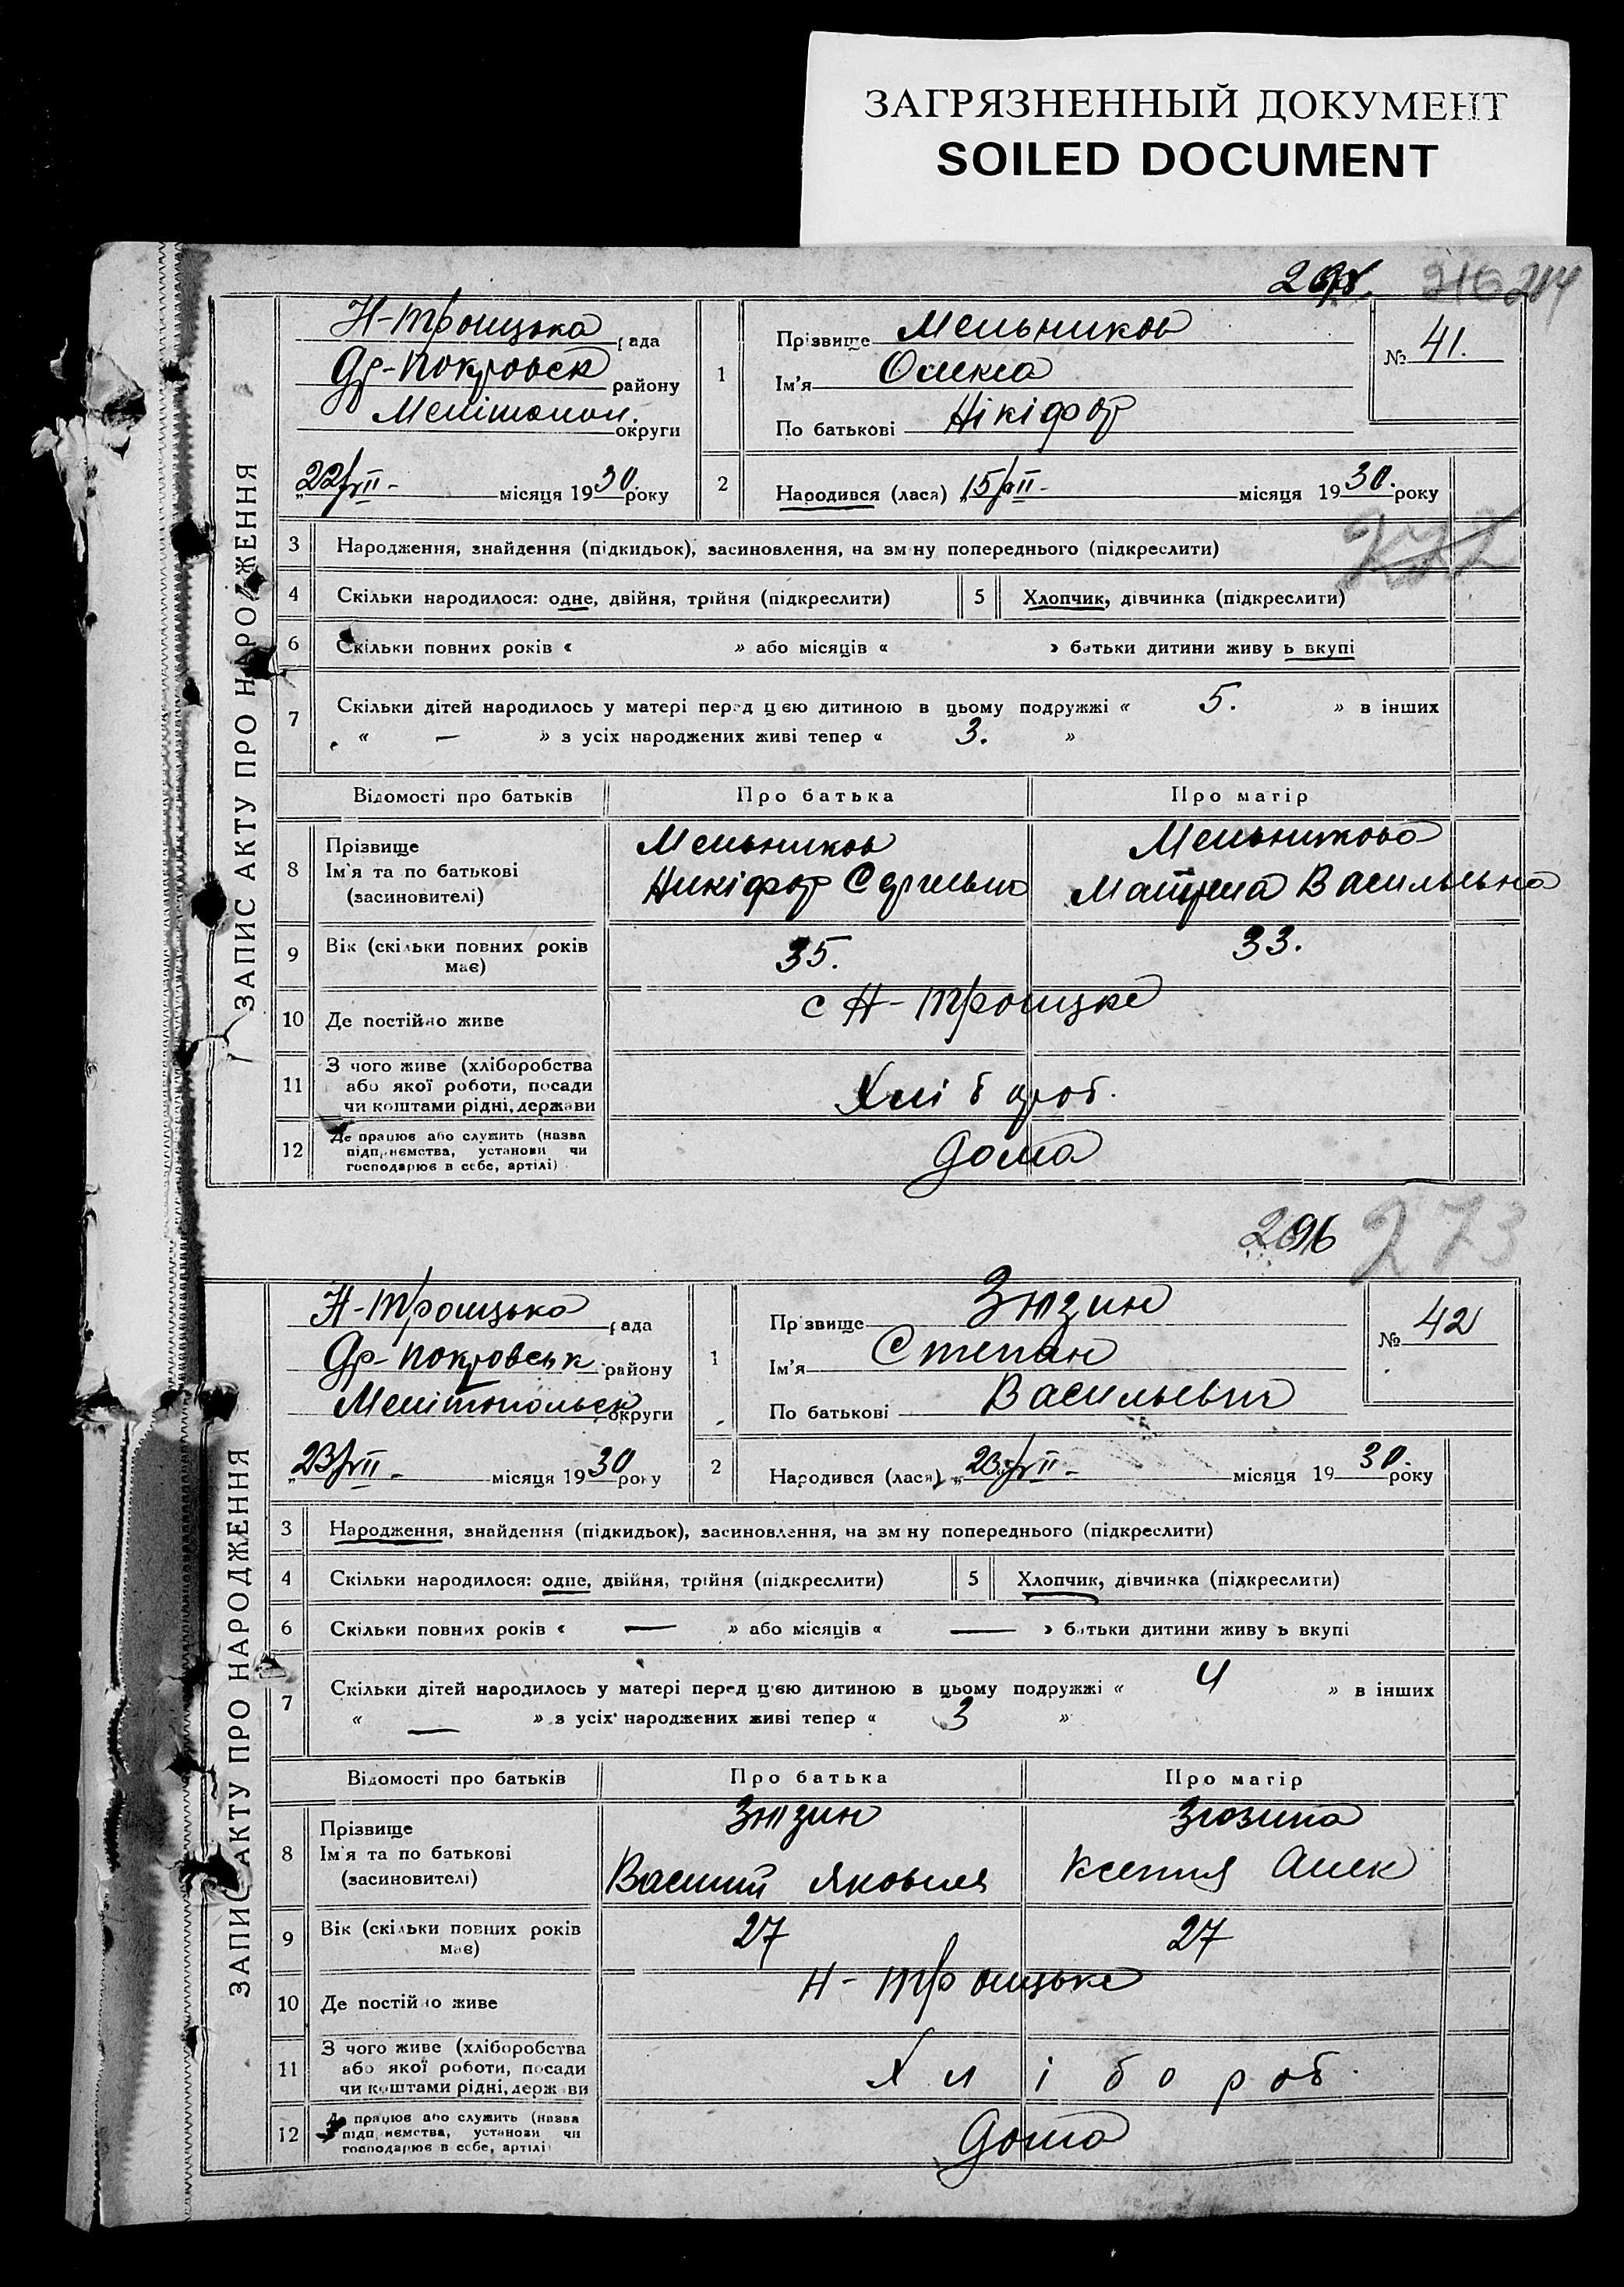 ЗАГРЯЗНЕННЫЙ ДОКУМЕНТ
SOILED DOCUMENT
214
ЗАПИС АКТУ ПРО НАРОДЖЕННЯ
Н-Троицька рада
Др-Покровськ району
Мелітопол. округи
22/VII- місяця 1930. року
1
Прізвище Мельников
Ім'я Олекса
По батькові Нікіфор
№ 41.
2
Народився (лася) 15/VII- місяця 1930. року
272
3 Народження, знайдення (підкидьок), засиновлення, на зміну попереднього (підкреслити)
4 Скільки народилося: одне, двійня, трійня (підкреслити)
5 Хлопчик, дівчинка (підкреслити)
6 Скільки повних років « » або місяців « » батьки дитини живуть вкупі
7 Скільки дітей народилось у матері перед цією дитиною в цьому подружжі « 5. » в інших
« — » з усіх народжених живі тепер « 3. »
Відомості про батьків Про батька Про матір
8 Прізвище Ім'я та по батькові (засновителі)
Мельников
Никіфор Сергиевич
Мельникова
Матрена Васильевна
9 Вік (скільки повних років має) 35. 33.
10 Де постійно живе с Н-Троицке
11 З чого живе (хліборобства або якої роботи, посади чи коштами рідні, держави Хлібороб.
12 Де працює або служить (назва підприємства, установи чи господарює в себе, артілі) дома
296 273
ЗАПИС АКТУ ПРО НАРОДЖЕННЯ
Н-Троицька рада
Др-Покровськ району
Мелітопольськ округи
23/VII- місяця 1930 року
1
Прізвище Зюзин
Ім'я Степан
По батькові Васильевич
№ 42
2
Народився (лася) „20/VII- місяця 1930. року
3 Народження, знайдення (підкидьок), засиновлення, на зміну попереднього (підкреслити)
4 Скільки народилося: одне, двійня, трійня (підкреслити)
5 Хлопчик, дівчинка (підкреслити)
6 Скільки повних років « — » або місяців « — » батьки дитини живуть вкупі
7 Скільки дітей народилось у матері перед цією дитиною в цьому подружжі « 4 » в інших
« — » з усіх народжених живі тепер « 3 »
Відомості про батьків Про батька Про матір
8 Прізвище Ім'я та по батькові (засиновителі)
Зюзин
Василий Яковлев
Зюзина
Ксения Алек
9 Вік (скільки повних років має) 27 27
10 Де постійно живе Н-Троицьке
11 З чого живе (хліборобства або якої роботи, посади чи коштами рідні, держави Хлібороб.
12 Де працює або служить (назва підприємства, установи чи господарює в себе, артілі) дома